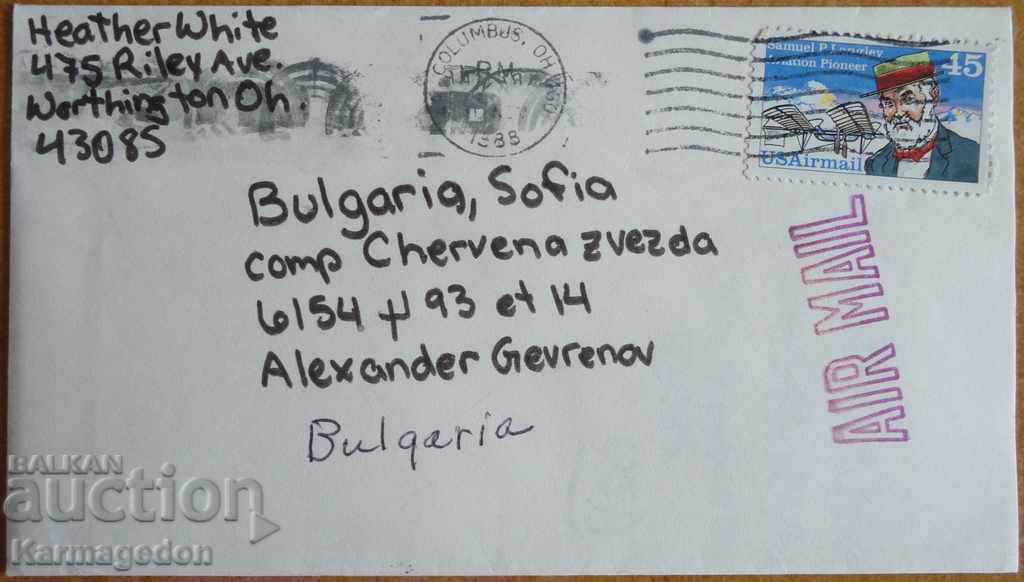 Heather White
475 Riley Ave.
Worthington Oh.
43085
COLUMBUS, OH
PM
1988
Samuel P. Langley
Aviation Pioneer
45
USAirmail
AIR MAIL
Bulgaria, Sofia
comp Chervena zvezda
6154 + 93 et 14
Alexander Gevrenov
Bulgaria
BALKAN
auction
Karmagedon